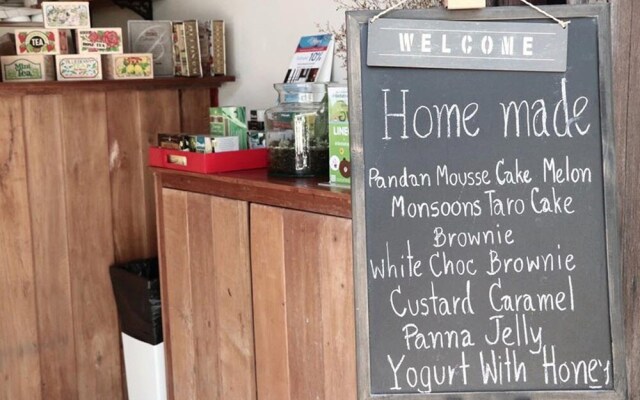 WELCOME
Home made
Pandan Mousse Cake Melon
Monsoons Taro Cake
Brownie
White Choc Brownie
Custard Caramel
Panna Jelly
Yogurt With Honey
TEA
LINE